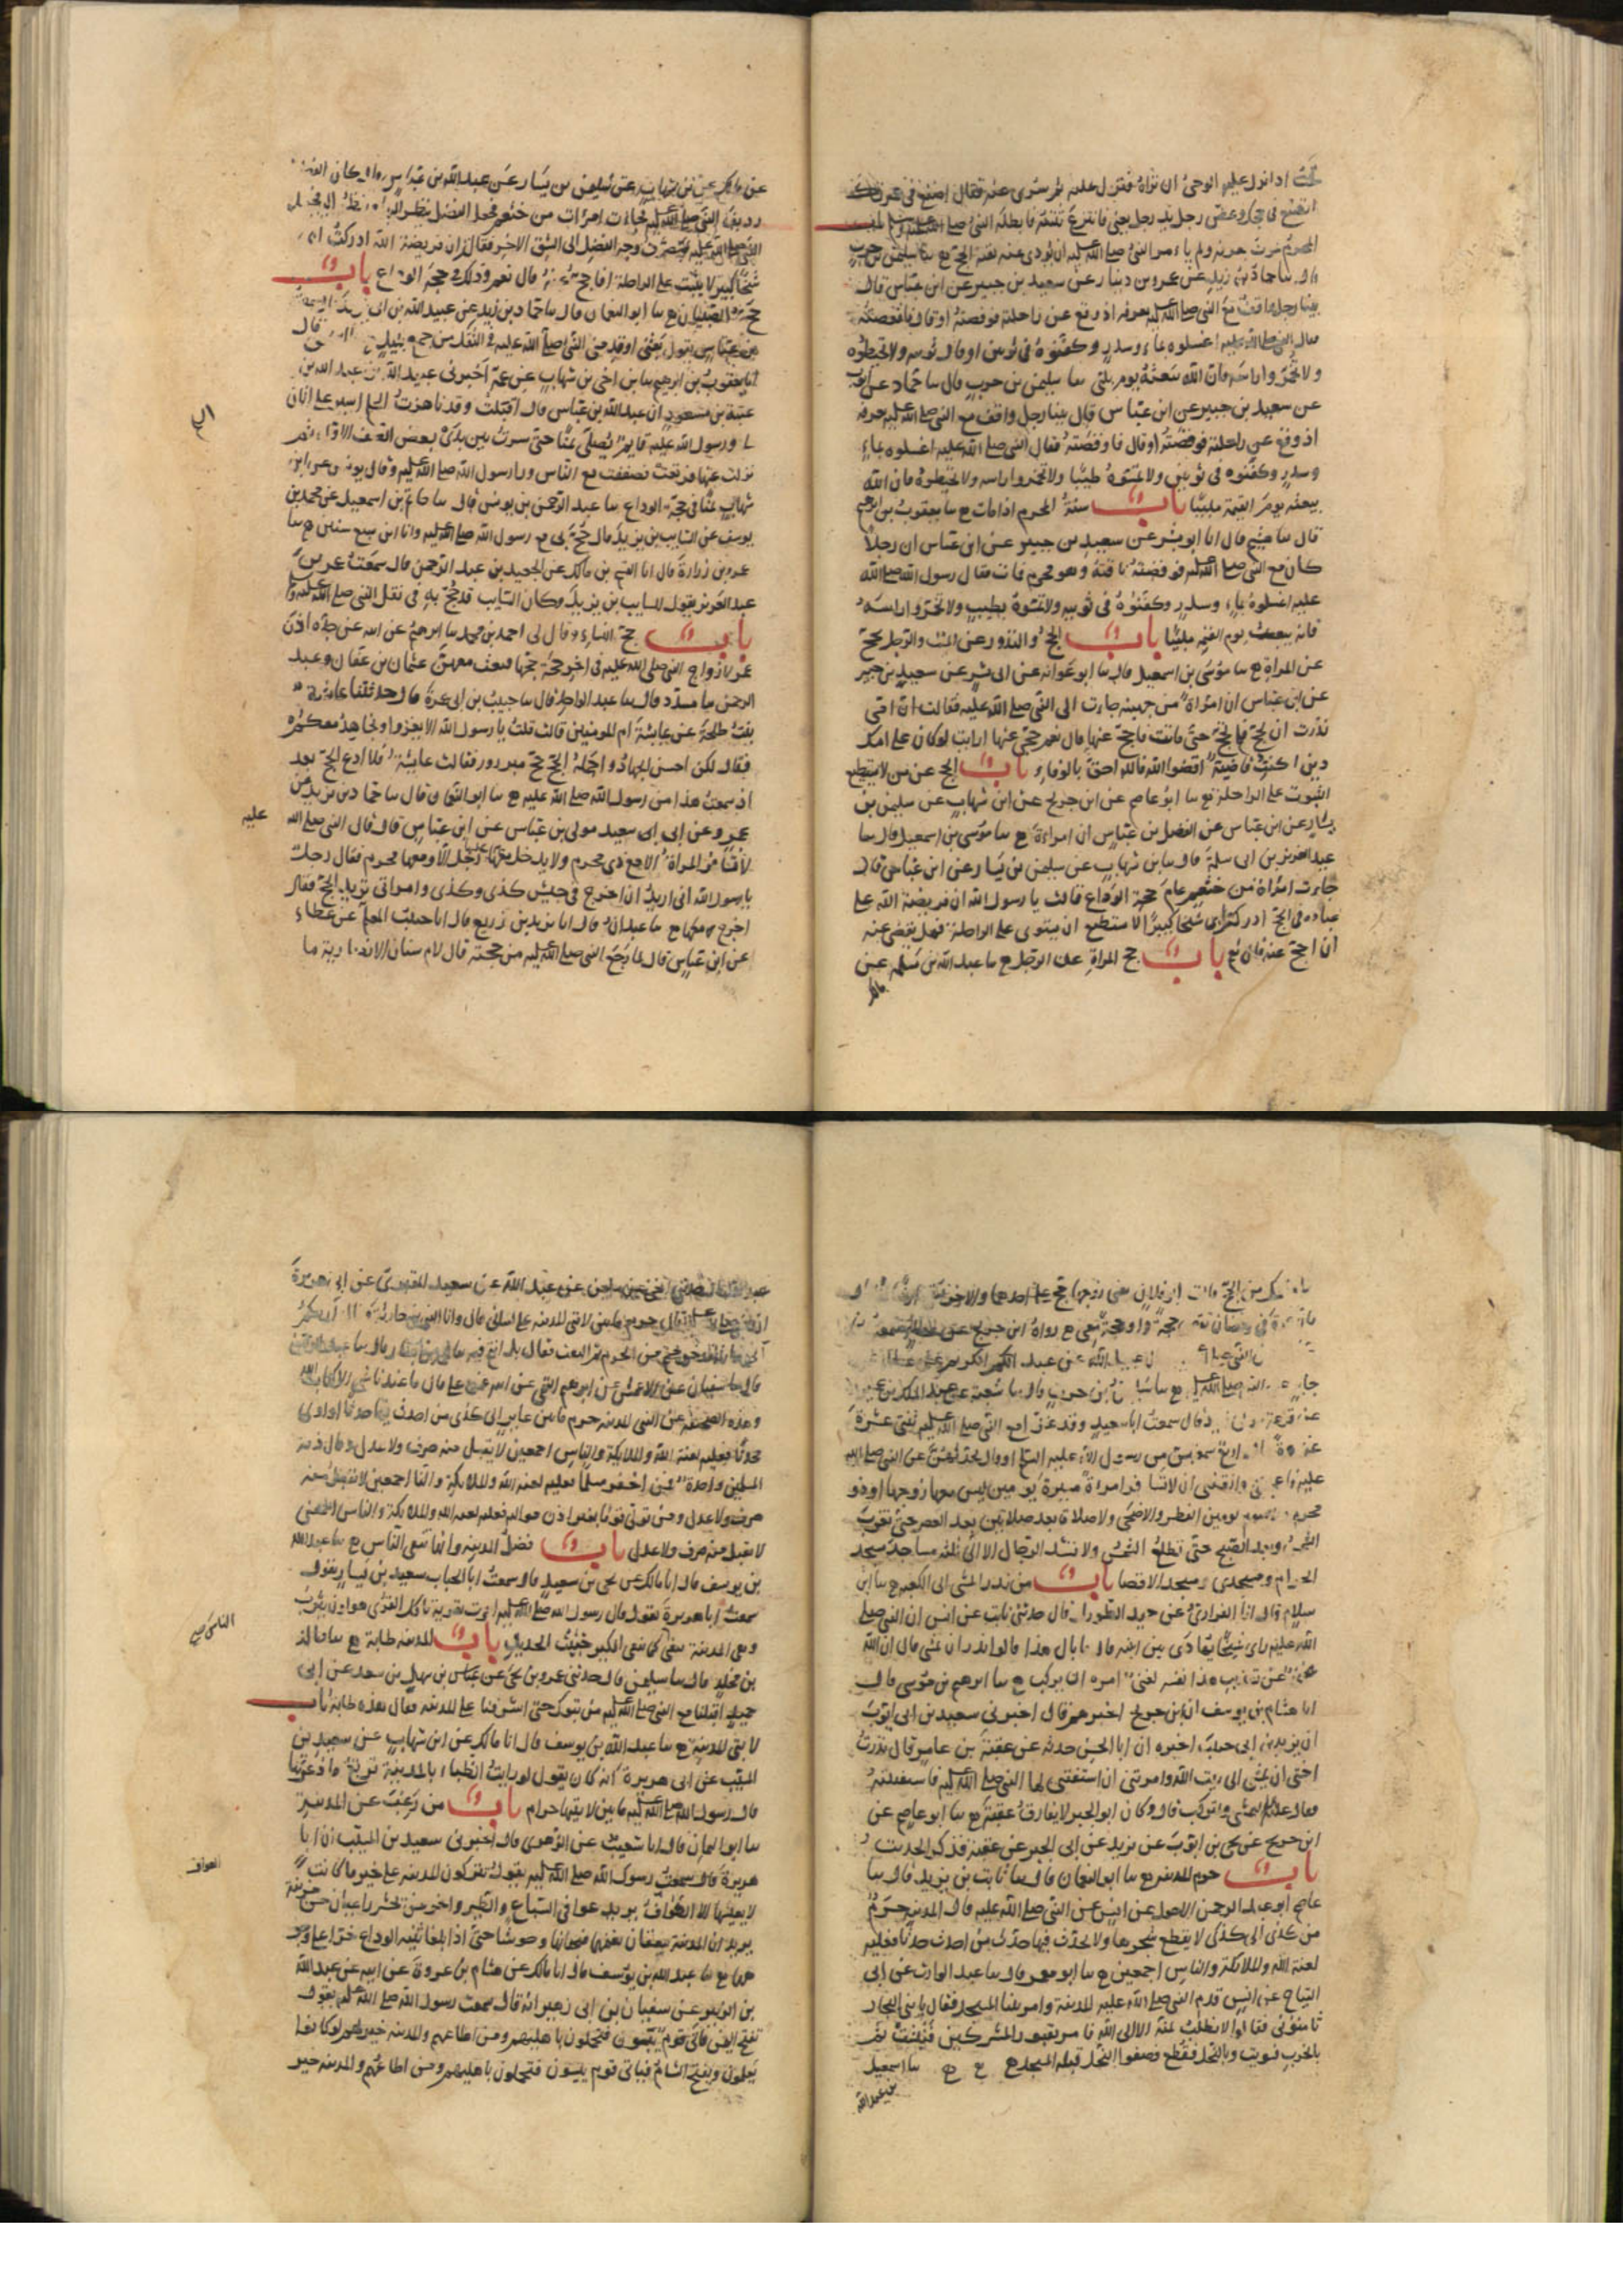 تحب اذا نزل عليه الوحي ان تراه فنزل عليه ثم سري عنه فقال اصنع في عمرتك
ما تصنع في حجك وعض رجل يد رجل يعني فانتزع ثنيته فابطله النبي صلى الله عليه وسلم باب
المحرم يموت بعرفة ولم يامر النبي صلى الله عليه ان يؤدى عنه بقية الحج ح سا سليمن بن حرب
قال سا حماد بن زيد عن عمرو بن دينار عن سعيد بن جبير عن ابن عباس قال
بينا رجل واقف مع النبي صلى الله عليه بعرفة اذ وقع عن راحلته فوقصته او قال فاقعصته
فقال النبي صلى الله عليه اغسلوه بماء وسدر وكفنوه في ثوبين او قال ثوبيه ولا تحنطوه
ولا تخمروا راسه فان الله يبعثه يوم القيمة يلبي سا سليمن بن حرب قال سا حماد عن ايوب
عن سعيد بن جبير عن ابن عباس قال بينا رجل واقف مع النبي صلى الله عليه بعرفة
اذ وقع عن راحلته فوقصته او قال فاوقصته فقال النبي صلى الله عليه اغسلوه بماء
وسدر وكفنوه في ثوبين ولا تمسوه طيبا ولا تخمروا راسه ولا تحنطوه فان الله
يبعثه يوم القيمة ملبيا باب سنة المحرم اذا مات ح سا يعقوب بن ابراهيم
قال سا هشيم قال انا ابو بشر عن سعيد بن جبير عن ابن عباس ان رجلا
كان مع النبي صلى الله عليه فوقصته ناقته وهو محرم فمات فقال رسول الله صلى الله
عليه اغسلوه بماء وسدر وكفنوه في ثوبيه ولا تمسوه بطيب ولا تخمروا راسه
فانه يبعث يوم القيمة ملبيا باب الحج والنذور عن الميت والرجل يحج
عن المراة ح سا موسى بن اسمعيل قال سا ابو عوانة عن ابي بشر عن سعيد بن جبير
عن ابن عباس ان امراة من جهينة جاءت الى النبي صلى الله عليه فقالت ان امي
نذرت ان تحج فلم تحج حتى ماتت فاحج عنها قال نعم حجي عنها ارايت لو كان على امك
دين اكنت قاضية اقضوا الله فالله احق بالوفاء باب الحج عن من لا يستطيع
الثبوت على الراحلة ح سا ابو عاصم عن ابن جريج عن ابن شهاب عن سليمن بن
يسار عن ابن عباس عن الفضل بن عباس ان امراة ح سا موسى بن اسمعيل قال سا
عبد العزيز بن ابي سلمة قال سا ابن شهاب عن سليمن بن يسار عن ابن عباس قال
جاءت امراة من خثعم عام حجة الوداع قالت يا رسول الله ان فريضة الله على
عباده في الحج ادركت ابي شيخا كبيرا لا يستطيع ان يستوي على الراحلة فهل يقضي عنه
ان احج عنه قال نعم باب حج المراة عن الرجل ح سا عبد الله بن مسلمة عن
مالك
عن مالك عن ابن شهاب عن سليمن بن يسار عن عبد الله بن عباس قال كان الفضل
رديف النبي صلى الله عليه فجاءت امرات من خثعم فجعل الفضل ينظر اليها وتنظر اليه فجعل
النبي صلى الله عليه يصرف وجه الفضل الى الشق الاخر فقالت ان فريضة الله ادركت ابي
شيخا كبيرا لا يثبت على الراحلة افاحج عنه قال نعم وذلك في حجة الوداع باب
حج الصبيان ح سا ابو النعمان قال سا حماد بن زيد عن عبيد الله بن ابي يزيد
ابن عباس يقول بعثني او قدمني النبي صلى الله عليه في الثقل من جمع بليل قال
انا يعقوب بن ابرهيم سا ابن اخي بن شهاب عن عمه اخبرني عبيد الله بن عبد الله بن
عتبة بن مسعود ان عبد الله بن عباس قال اقبلت وقد ناهزت الحلم اسير على اتان
لي ورسول الله عليه قايم يصلي بمنا حتى سرت بين يدي بعض الصف الاول ثم
نزلت عنها فرتعت فصففت مع الناس ورا رسول الله صلى الله عليه وقال يونس عن ابن
شهاب بمنا في حجة الوداع سا عبد الرحمن بن يونس قال سا حاتم بن اسمعيل عن محمد بن
يوسف عن السايب بن يزيد قال حج بي مع رسول الله صلى الله عليه وانا ابن سبع سنين ح سا
عمرو بن زرارة قال انا القسم بن مالك عن الجعيد بن عبد الرحمن قال سمعت عمر بن
عبد العزيز يقول للسايب بن يزيد وكان السايب قد حج به في ثقل النبي صلى الله عليه وسلم
باب حج النساء وقال لي احمد بن محمد سا ابرهيم عن ابيه عن جده اذن
عمر لازواج النبي صلى الله عليه في اخر حجة حجها فبعث معهن عثمان بن عفان وعبد
الرحمن سا مسدد قال سا عبد الواحد قال سا حبيب بن ابي عمرة قال حدثتنا عائشة
بنت طلحة عن عايشة ام المومنين قالت قلت يا رسول الله الا نغزوا ونجاهد معكم
فقال لكن احسن الجهاد واجمله الحج حج مبرور فقالت عايشة فلا ادع الحج بعد
اذ سمعت هذا من رسول الله صلى الله عليه ح سا ابو النعمان قال سا حماد بن زيد عن
عمرو عن ابي سعيد مولى بن عباس عن ابن عباس قال قال النبي صلى الله عليه
لا تسافر المراة الا مع ذي محرم ولا يدخل عليها رجل الا ومعها محرم فقال رجل
يا رسول الله اني اريد ان اخرج في جيش كذى وكذى وامراتي تريد الحج فقال
اخرج معها ح سا عبدان قال انا يزيد بن زريع قال انا حبيب المعلم عن عطاء
عن ابن عباس قال لما رجع النبي صلى الله عليه من حجته قال لام سنان الانصارية ما
منعك من الحج قالت ابو فلان تعني زوجها حج على احدهما والاخر
عمرة في رمضان تقضي حجة او حجة معي ح رواه ابن جريج عن
عن عبد الكريم
جابر عن النبي صلى الله عليه ح سا سليمن بن حرب قال سا شعبة عن عبد الملك بن عمير
عن قزعة قال سمعت ابا سعيد وقد غزى مع النبي صلى الله عليه ثنتي عشرة
غزوة قال اربع سمعتهن من رسول الله عليه السلام او قال يحدثهن عن النبي صلى الله
عليه فاعجبنني وانقنني ان لا تسافر امراة مسيرة يومين ليس معها زوجها او ذو
محرم ولا صوم يومين الفطر والاضحى ولا صلاة بعد صلاتين بعد العصر حتى تغرب
الشمس وبعد الصبح حتى تطلع الشمس ولا تشد الرحال الا الى ثلثة مساجد مسجد
الحرام ومسجدي ومسجد الاقصا باب من نذر المشي الى الكعبة ح سا ابن
سلام قال انا الفزاري عن حميد الطويل قال حدثني ثابت عن انس ان النبي صلى
الله عليه راى شيخا يهادى بين ابنيه قال ما بال هذا قالوا نذر ان يمشي قال ان الله
عز وجل عن تعذيب هذا نفسه لغني امره ان يركب ح سا ابرهيم بن موسى قال
انا هشام بن يوسف ان ابن جريج اخبرهم قال اخبرني سعيد بن ابي ايوب
ان يزيد بن ابي حبيب اخبره ان ابا الخير حدثه عن عقبة بن عامر قال نذرت
اختي ان تمشي الى بيت الله وامرتني ان استفتي لها النبي صلى الله عليه فاستفتيته
فقال عليه السلام لتمشي ولتركب قال وكان ابو الخير لا يفارق عقبة ح سا ابو عاصم عن
ابن جريج عن يحيى بن ايوب عن يزيد عن ابي الخير عن عقبة فذكر الحديث
باب حرم المدينة ح سا ابو النعمان قال سا ثابت بن يزيد قال سا
عاصم ابو عبد الرحمن الاحول عن انس عن النبي صلى الله عليه قال المدينة حرم
من كذى الى كذى لا يقطع شجرها ولا يحدث فيها حدث من احدث حدثا فعليه
لعنة الله والملائكة والناس اجمعين ح سا ابو معمر قال سا عبد الوارث عن ابي
التياح عن انس قدم النبي صلى الله عليه المدينة وامر ببنا المسجد فقال يا بني النجار
ثامنوني فقالوا لا نطلب ثمنه الا الى الله فامر بقبور المشركين فنبشت ثم
بالخرب فسويت وبالنخل فقطع فصفوا النخل قبلة المسجد ح سا اسمعيل
بن عبد الله
عن عبيد الله عن سعيد المقبري عن ابي هريرة
ان النبي صلى الله عليه قال حرم ما بين لابتي المدينة على لساني قال واتى النبي بني حارثة فقال اراكم
يا بني حارثة قد خرجتم من الحرم ثم التفت فقال بل انتم فيه سا محمد بن بشار قال سا عبد الرحمن
قال سا سفيان عن الاعمش عن ابرهيم التيمي عن ابيه عن علي قال ما عندنا شي الا كتاب الله
وهذه الصحيفة عن النبي المدينة حرم ما بين عاير الى كذى من احدث فيها حدثا او اوى
محدثا فعليه لعنة الله والملايكة والناس اجمعين لا يقبل منه صرف ولا عدل وقال ذمة
المسلمين واحدة فمن اخفر مسلما فعليه لعنة الله والملايكة والناس اجمعين لا يقبل منه
صرف ولا عدل ومن تولى قوما بغير اذن مواليه فعليه لعنة الله والملايكة والناس اجمعين
لا يقبل منه صرف ولا عدل باب فضل المدينة وانها تنفي الناس ح سا عبد الله
بن يوسف قال انا مالك عن يحيى بن سعيد قال سمعت ابا الحباب سعيد بن يسار يقول
سمعت ابا هريرة يقول قال رسول الله صلى الله عليه امرت بقرية تاكل القرى يقولون يثرب
وهي المدينة تنفي كما ينفي الكير خبث الحديد باب المدينة طابة ح سا خالد
بن مخلد قال سا سليمن قال حدثني عمرو بن يحيى عن عباس بن سهل بن سعد عن ابي
حميد اقبلنا مع النبي صلى الله عليه من تبوك حتى اشرفنا على المدينة فقال هذه طابة باب
لابتي المدينة ح سا عبد الله بن يوسف قال انا مالك عن ابن شهاب عن سعيد بن
المسيب عن ابي هريرة انه كان يقول لو رايت الظباء بالمدينة ترتع ما ذعرتها
قال رسول الله صلى الله عليه ما بين لابتيها حرام باب من رغب عن المدينة
سا ابو اليمان قال انا شعيب عن الزهري قال اخبرني سعيد بن المسيب ان ابا
هريرة قال سمعت رسول الله صلى الله عليه يقول تتركون المدينة على خير ما كانت
لا يغشاها الا العواف يريد عوافي السباع والطير واخر من يحشر راعيان من مزينة
يريدان المدينة ينعقان بغنمهما فيجدانها وحوشا حتى اذا بلغا ثنية الوداع خرا على وجو
ههما ح سا عبد الله بن يوسف قال انا مالك عن هشام بن عروة عن ابيه عن عبد الله
بن الزبير عن سفيان بن ابي زهير انه قال سمعت رسول الله صلى الله عليه يقول
تفتح اليمن فياتي قوم يبسون فيتحملون باهليهم ومن اطاعهم والمدينة خير لهم لو كانوا
يعلمون وتفتح الشام فياتي قوم يبسون فيتحملون باهليهم ومن اطاعهم والمدينة خير
عليه
العواف